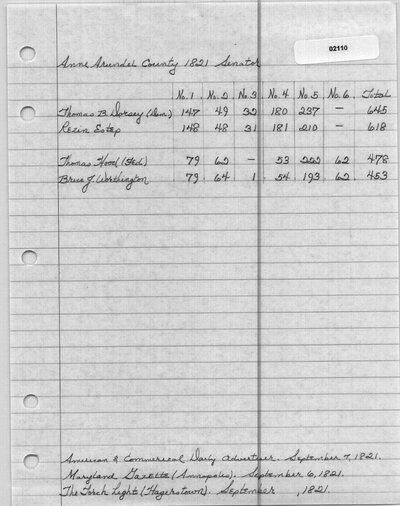 02110
Anne Arundel County 1821 Senator
No. 1 No. 2 No. 3 No. 4 No. 5 No. 6 Total
Thomas B. Dorsey (Dem.) 147 49 32 180 237 — 645
Rezin Estep 148 48 31 181 210 — 618
Thomas Hood (Fed) 79 62 — 53 222 62 478
Brice J. Worthington 79 64 1 54 193 62 453
American & Commerical Daily Advertiser. September 7, 1821.
Maryland Gazette (Annapolis). September 6, 1821.
The Torch Light (Hagerstown). September , 1821.